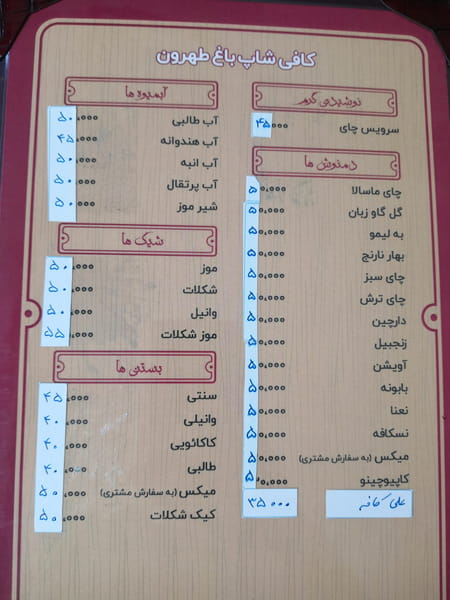 کافی شاپ باغ طهرون
نوشیدنی گرم
سرویس چای ۴۵،۰۰۰
دمنوش ها
چای ماسالا ۵۰،۰۰۰
گل گاو زبان ۵۰،۰۰۰
به لیمو ۵۰،۰۰۰
بهار نارنج ۵۰،۰۰۰
چای سبز ۵۰،۰۰۰
چای ترش ۵۰،۰۰۰
دارچین ۵۰،۰۰۰
زنجبیل ۵۰،۰۰۰
آویشن ۵۰،۰۰۰
بابونه ۵۰،۰۰۰
نعنا ۵۰،۰۰۰
نسکافه ۵۰،۰۰۰
میکس (به سفارش مشتری) ۵۰،۰۰۰
کاپیوچینو ۵۰،۰۰۰
علی کافه ۳۵۰۰۰
آبمیوه ها
آب طالبی ۵۰،۰۰۰
آب هندوانه ۴۵،۰۰۰
آب انبه ۵۰،۰۰۰
آب پرتقال ۵۰،۰۰۰
شیر موز ۵۰،۰۰۰
شیک ها
موز ۵۰،۰۰۰
شکلات ۵۰،۰۰۰
وانیل ۵۰،۰۰۰
موز شکلات ۵۵،۰۰۰
بستنی ها
سنتی ۴۵،۰۰۰
وانیلی ۴۰،۰۰۰
کاکائویی ۴۰،۰۰۰
طالبی ۴۰،۰۰۰
میکس (به سفارش مشتری) ۵۰،۰۰۰
کیک شکلات ۵۰،۰۰۰